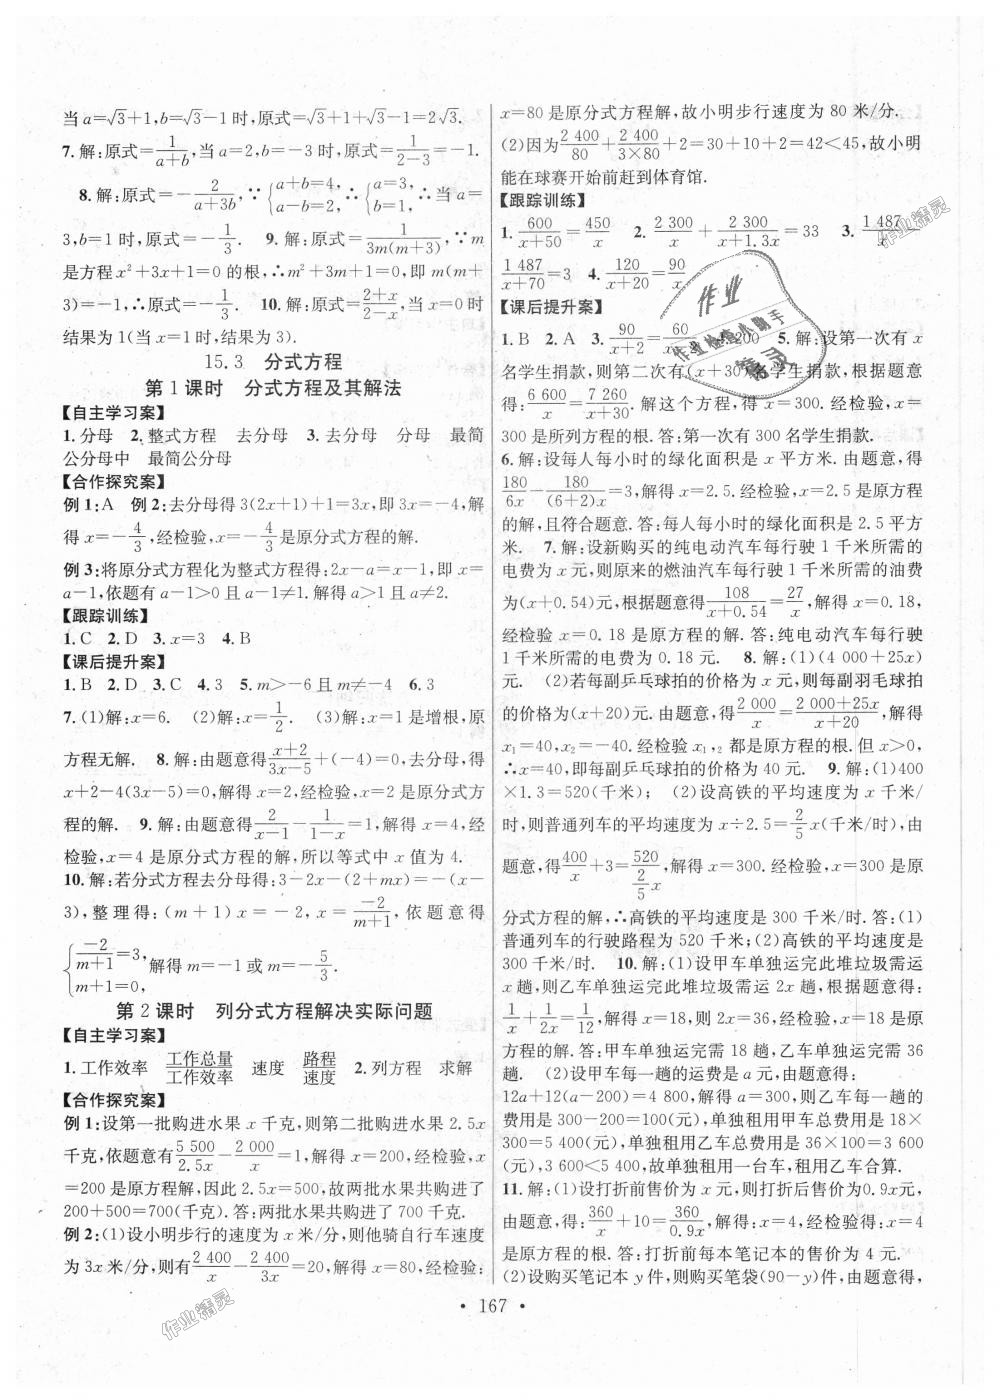 当a=√3+1,b=√3-1时,原式=√3+1+√3-1=2√3.
7.解:原式=1/(a+b),当a=2,b=-3时,原式=1/(2-3)=-1.
8.解:原式=-2/(a+3b),∵{a+b=4,a-b=2,∴{a=3,b=1,∴当a=
3,b=1时,原式=-1/3. 9.解:原式=1/(3m(m+3)),∵m
是方程x²+3x+1=0的根,∴m²+3m+1=0,即m(m+
3)=-1,∴原式=-1/3. 10.解:原式=(2+x)/(2-x),当x=0时
结果为1(当x=1时,结果为3).
15.3 分式方程
第1课时 分式方程及其解法
【自主学习案】
1.分母 2.整式方程 去分母 3.去分母 分母 最简
公分母中 最简公分母
【合作探究案】
例1:A 例2:去分母得3(2x+1)+1=3x,即3x=-4,解
得x=-4/3,经检验,x=-4/3是原分式方程的解.
例3:将原分式方程化为整式方程得:2x-a=x-1,即x=
a-1,依题有a-1>0且a-1≠1.解得a>1且a≠2.
【跟踪训练】
1.C 2.D 3.x=3 4.B
【课后提升案】
1.B 2.D 3.C 4.3 5.m>-6且m≠-4 6.3
7.(1)解:x=6. (2)解:x=1/2. (3)解:x=1是增根,原
方程无解. 8.解:由题意得(x+2)/(3x-5)+(-4)=0,去分母,得
x+2-4(3x-5)=0,解得x=2,经检验,x=2是原分式方
程的解. 9.解:由题意得2/(x-1)-1/(1-x)=1,解得x=4,经
检验,x=4是原分式方程的解,所以等式中x值为4.
10.解:若分式方程去分母得:3-2x-(2+mx)=-(x-
3),整理得:(m+1)x=-2,x=-2/(m+1),依题意得
{-2/(m+1)=3,m+1=0,解得m=-1或m=-5/3.
第2课时 列分式方程解决实际问题
【自主学习案】
1.工作效率 工作总量/工作效率 速度 路程/速度 2.列方程 求解
【合作探究案】
例1:设第一批购进水果x千克,则第二批购进水果2.5x
千克,依题意有5 500/2.5x-2 000/x=1,解得x=200,经检验,x
=200是原方程解,因此2.5x=500,故两批水果共购进了
200+500=700(千克).答:两批水果共购进了700千克.
例2:(1)设小明步行的速度为x米/分,则他骑自行车速度
为3x米/分,则有2 400/x-2 400/3x=20,解得x=80,经检验,
x=80是原分式方程解,故小明步行速度为80米/分.
(2)因为2 400/80+2 400/(3×80)+2=30+10+2=42<45,故小明
能在球赛开始前赶到体育馆.
【跟踪训练】
1.600/(x+50)=450/x 2.2 300/x+2 300/(x+1.3x)=33 3.1 487/x-
1 487/(x+70)=3 4.120/(x+20)=90/x
【课后提升案】
1.B 2.A 3.90/(x+2)=60/x 200 5.解:设第一次有x
名学生捐款,则第二次有(x+30)名学生捐款,根据题意
得:6 600/x=7 260/(x+30).解这个方程,得x=300.经检验,x=
300是所列方程的根.答:第一次有300名学生捐款.
6.解:设每人每小时的绿化面积是x平方米.由题意,得
180/6x-180/((6+2)x)=3,解得x=2.5.经检验,x=2.5是原方程
的解,且符合题意.答:每人每小时的绿化面积是2.5平方
米. 7.解:设新购买的纯电动汽车每行驶1千米所需的
电费为x元,则原来的燃油汽车每行驶1千米所需的油费
为(x+0.54)元,根据题意得108/(x+0.54)=27/x,解得x=0.18,
经检验x=0.18是原方程的解.答:纯电动汽车每行驶
1千米所需的电费为0.18元. 8.解:(1)(4 000+25x)
元. (2)若每副乒乓球拍的价格为x元,则每副羽毛球拍
的价格为(x+20)元.由题意,得2 000/x=(2 000+25x)/(x+20),解得
x₁=40,x₂=-40.经检验x₁,₂都是原方程的根.但x>0,
∴x=40,即每副乒乓球拍的价格为40元. 9.解:(1)400
×1.3=520(千米); (2)设高铁的平均速度为x千米/
时,则普通列车的平均速度为x÷2.5=2/5x(千米/时),由
题意,得400/x+3=520/(2/5x),解得x=300.经检验,x=300是原
分式方程的解,∴高铁的平均速度是300千米/时.答:(1)
普通列车的行驶路程为520千米;(2)高铁的平均速度是
300千米/时. 10.解:(1)设甲车单独运完此堆垃圾需运
x趟,则乙车单独运完此堆垃圾需运2x趟,根据题意得:
1/x+1/2x=1/12,解得:x=18,则2x=36,经检验得:x=18是原
方程的解.答:甲车单独运完需18趟,乙车单独运完需36
趟. (2)设甲车每一趟的运费是a元,由题意得:
12a+12(a-200)=4 800,解得:a=300,则乙车每一趟
的费用是300-200=100(元),单独租用甲车总费用是18×
300=5 400(元),单独租用乙车总费用是36×100=3 600
(元),3 600<5 400,故单独租用一台车,租用乙车合算.
11.解:(1)设打折前售价为x元,则打折后售价为0.9x元,
由题意,得:360/x+10=360/0.9x,解得:x=4,经检验得:x=4
是原方程的根.答:打折前每本笔记本的售价为4元.
(2)设购买笔记本y件,则购买笔袋(90-y)件,由题意得,
• 167 •
作业精灵
作业精灵
作业
作业检查小助手
精灵